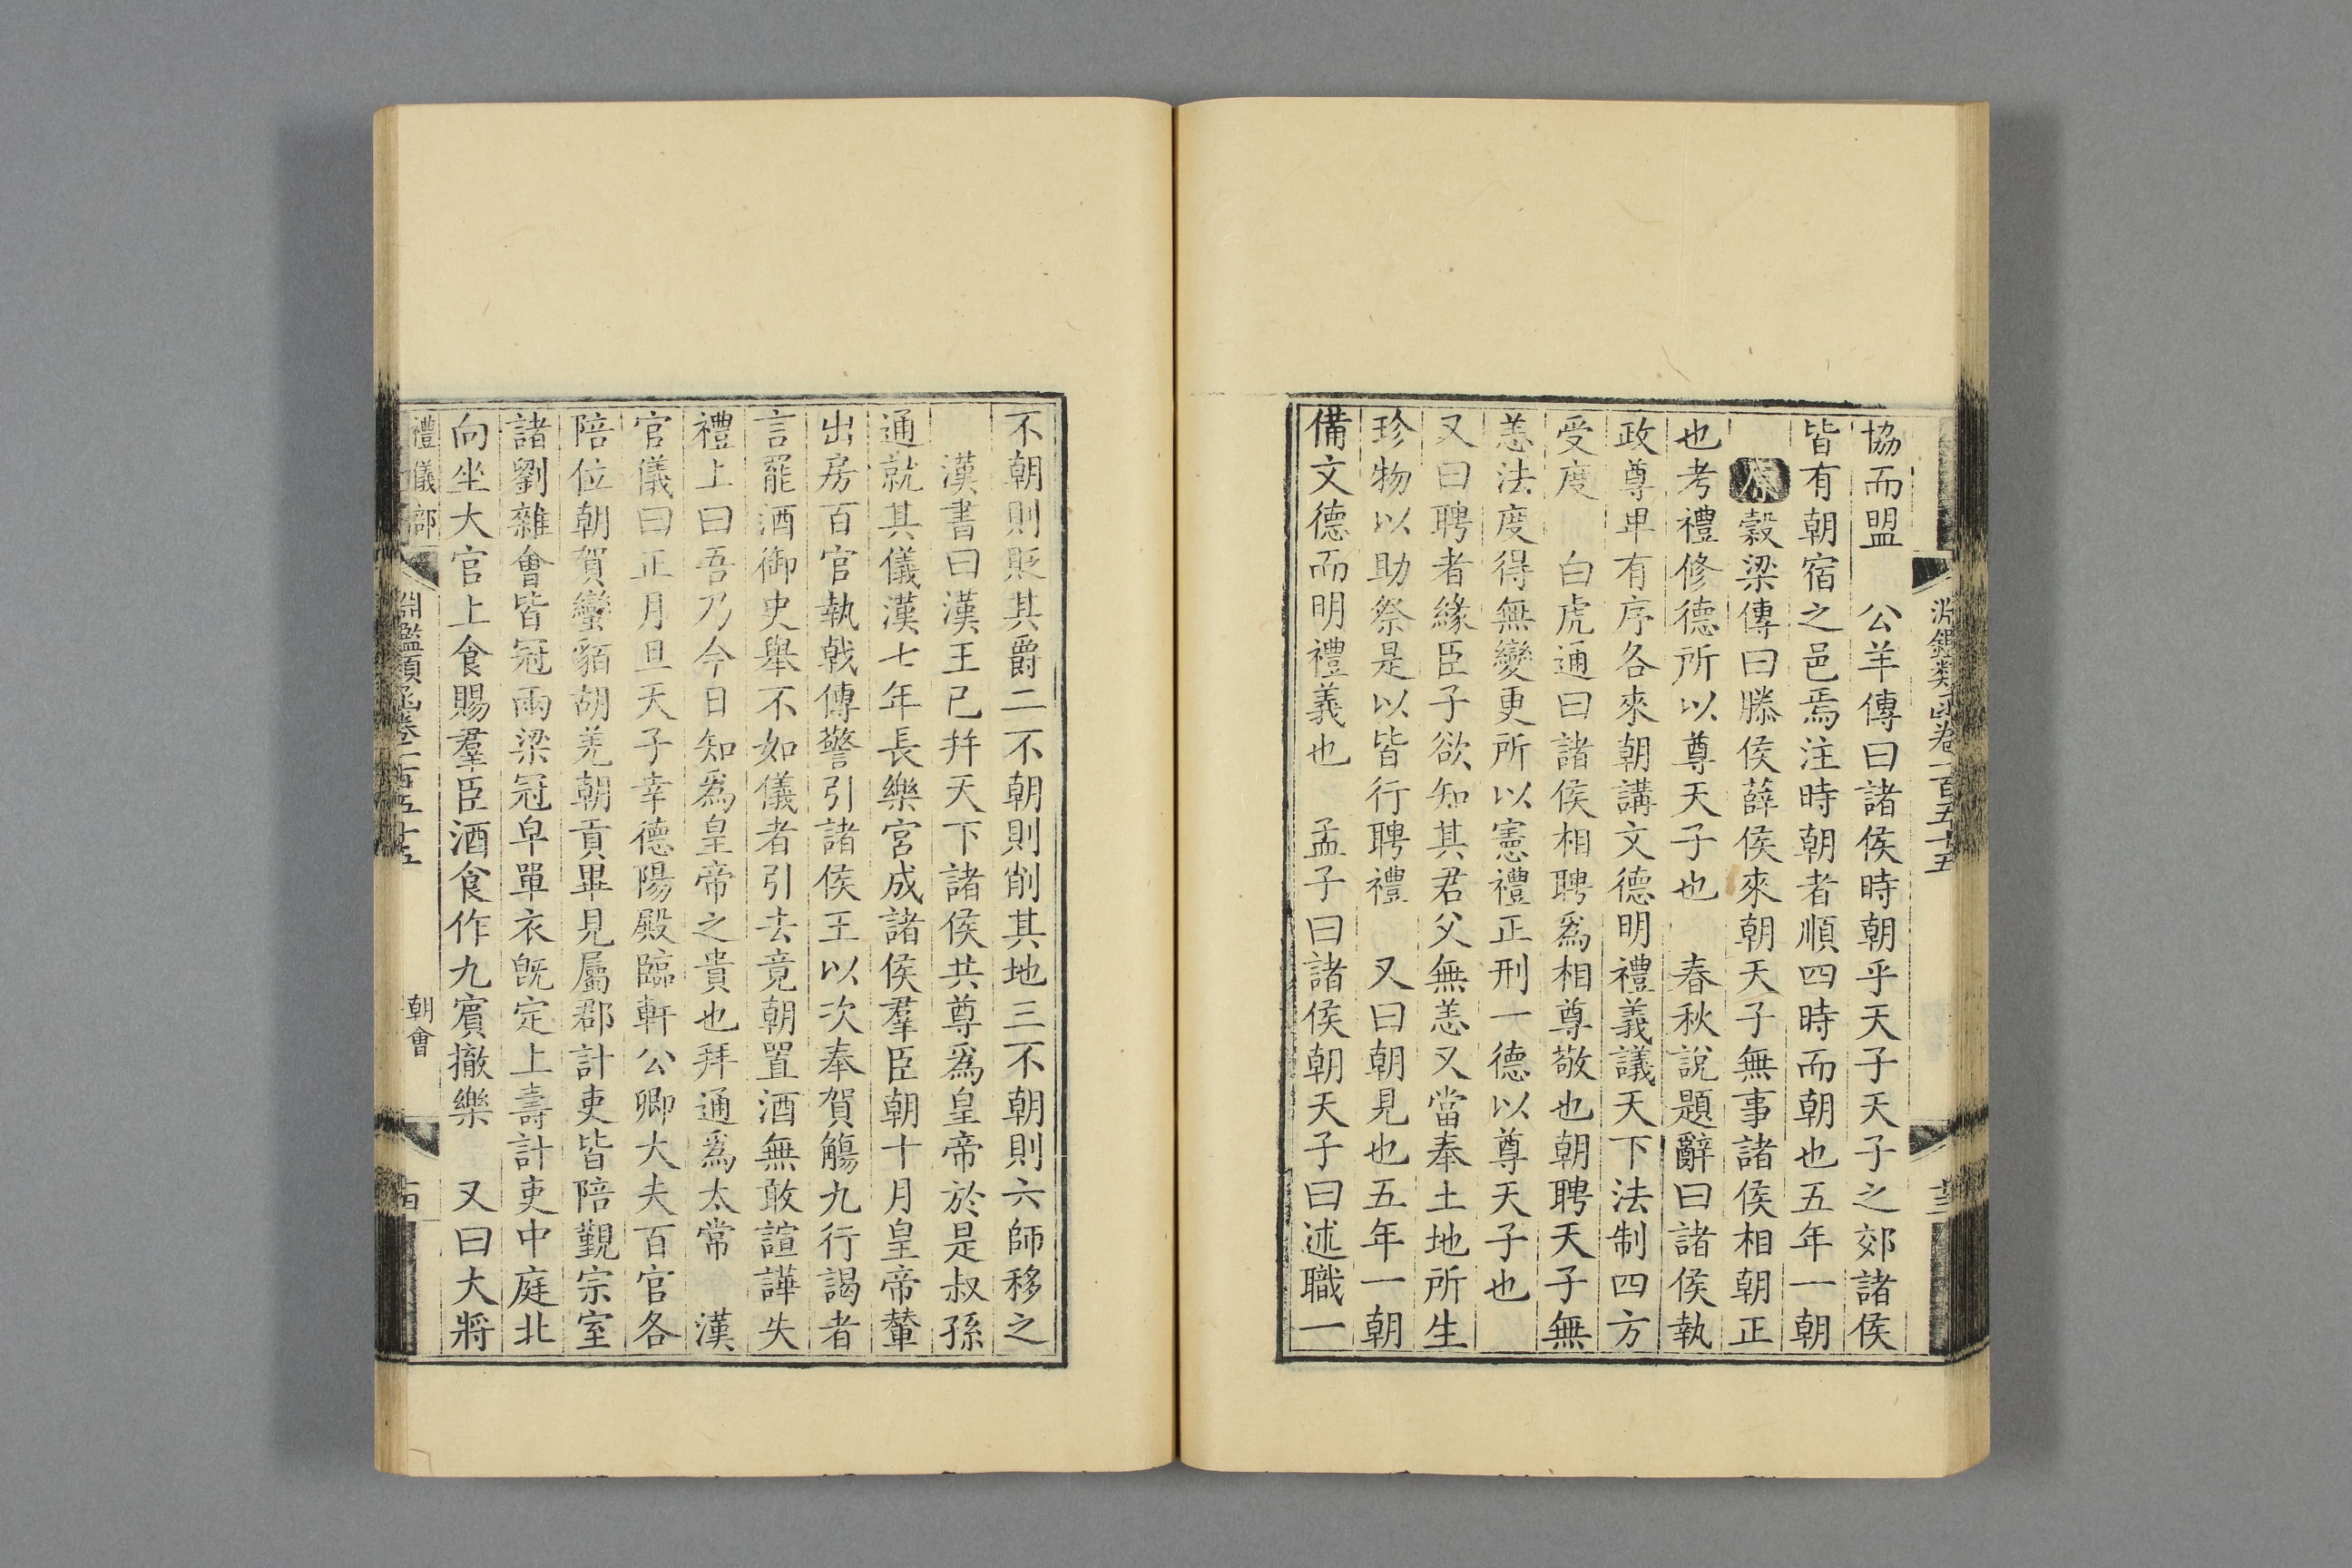 淵鑑類函卷一百五十五
協而盟　公羊傳曰諸侯時朝乎天子天子之郊諸侯
皆有朝宿之邑焉注時朝者順四時而朝也五年一朝
原穀梁傳曰滕侯薛侯來朝天子無事諸侯相朝正
也考禮修德所以尊天子也　春秋說題辭曰諸侯執
政尊卑有序各來朝講文德明禮義議天下法制四方
受度　白虎通曰諸侯相聘爲相尊敬也朝聘天子無
恙法度得無變更所以憲禮正刑一德以尊天子也
又曰聘者緣臣子欲知其君父無恙又當奉土地所生
珍物以助祭是以皆行聘禮　又曰朝見也五年一朝
備文德而明禮義也　孟子曰諸侯朝天子曰述職一
不朝則貶其爵二不朝則削其地三不朝則六師移之
漢書曰漢王已幷天下諸侯共尊爲皇帝於是叔孫
通就其儀漢七年長樂宮成諸侯羣臣朝十月皇帝輦
出房百官執戟傳警引諸侯王以次奉賀觴九行謁者
言罷酒御史舉不如儀者引去竟朝置酒無敢諠譁失
禮上曰吾乃今日知爲皇帝之貴也拜通爲太常　漢
官儀曰正月旦天子幸德陽殿臨軒公卿大夫百官各
陪位朝賀蠻貊胡羌朝貢畢見屬郡計吏皆陪覲宗室
諸劉雜會皆冠兩梁冠皁單衣旣定上壽計吏中庭北
向坐大官上食賜羣臣酒食作九賓撤樂　又曰大將
禮儀部
淵鑑類函卷一百五十五
朝會